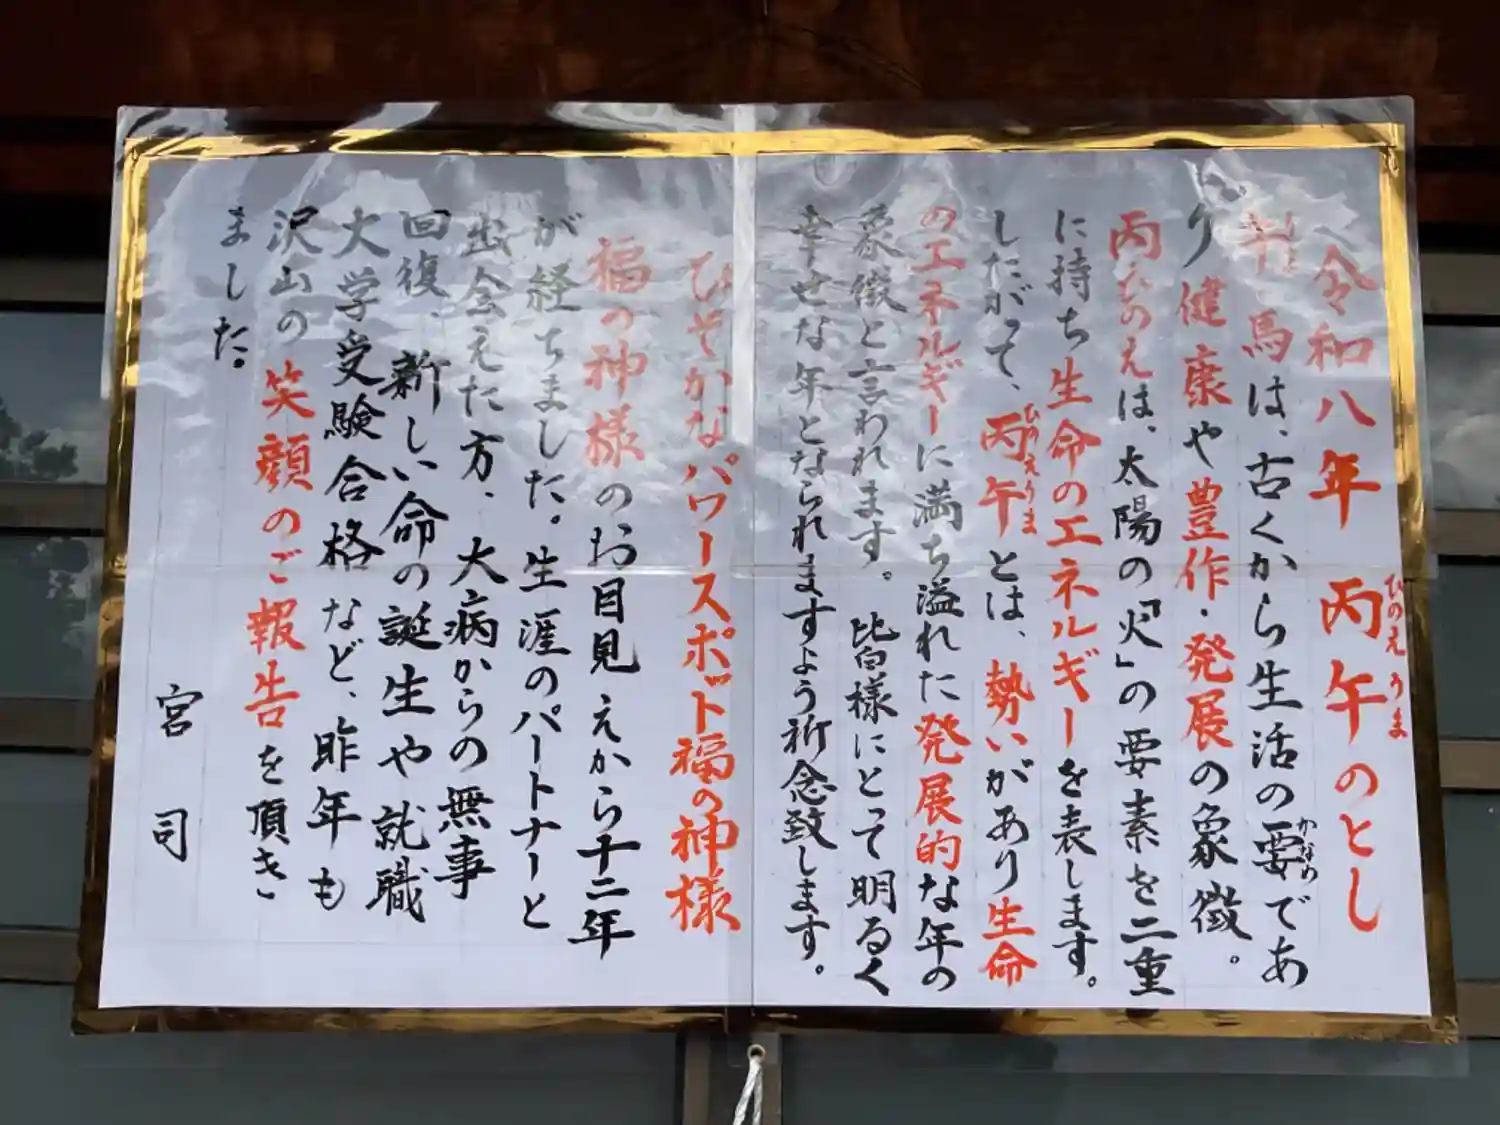 令和八年 丙午のとし
ひのえ うま
午、馬は、古くから生活の要であ
かなめ
り健康や豊作・発展の象徴。
丙ひのえは、太陽の「火」の要素を二重
に持ち生命のエネルギーを表します。
したがって、丙午とは、勢いがあり生命
ひのえうま
のエネルギーに満ち溢れた発展的な年の
象徴と言われます。皆様にとって明るく
幸せな年となられますよう祈念致します。
ひそかなパワースポット福の神様
福の神様のお目見えから十二年
が経ちました。生涯のパートナーと
出会えた方、大病からの無事
回復、新しい命の誕生や就職
大学受験合格など、昨年も
沢山の笑顔のご報告を頂き
ました。
宮司